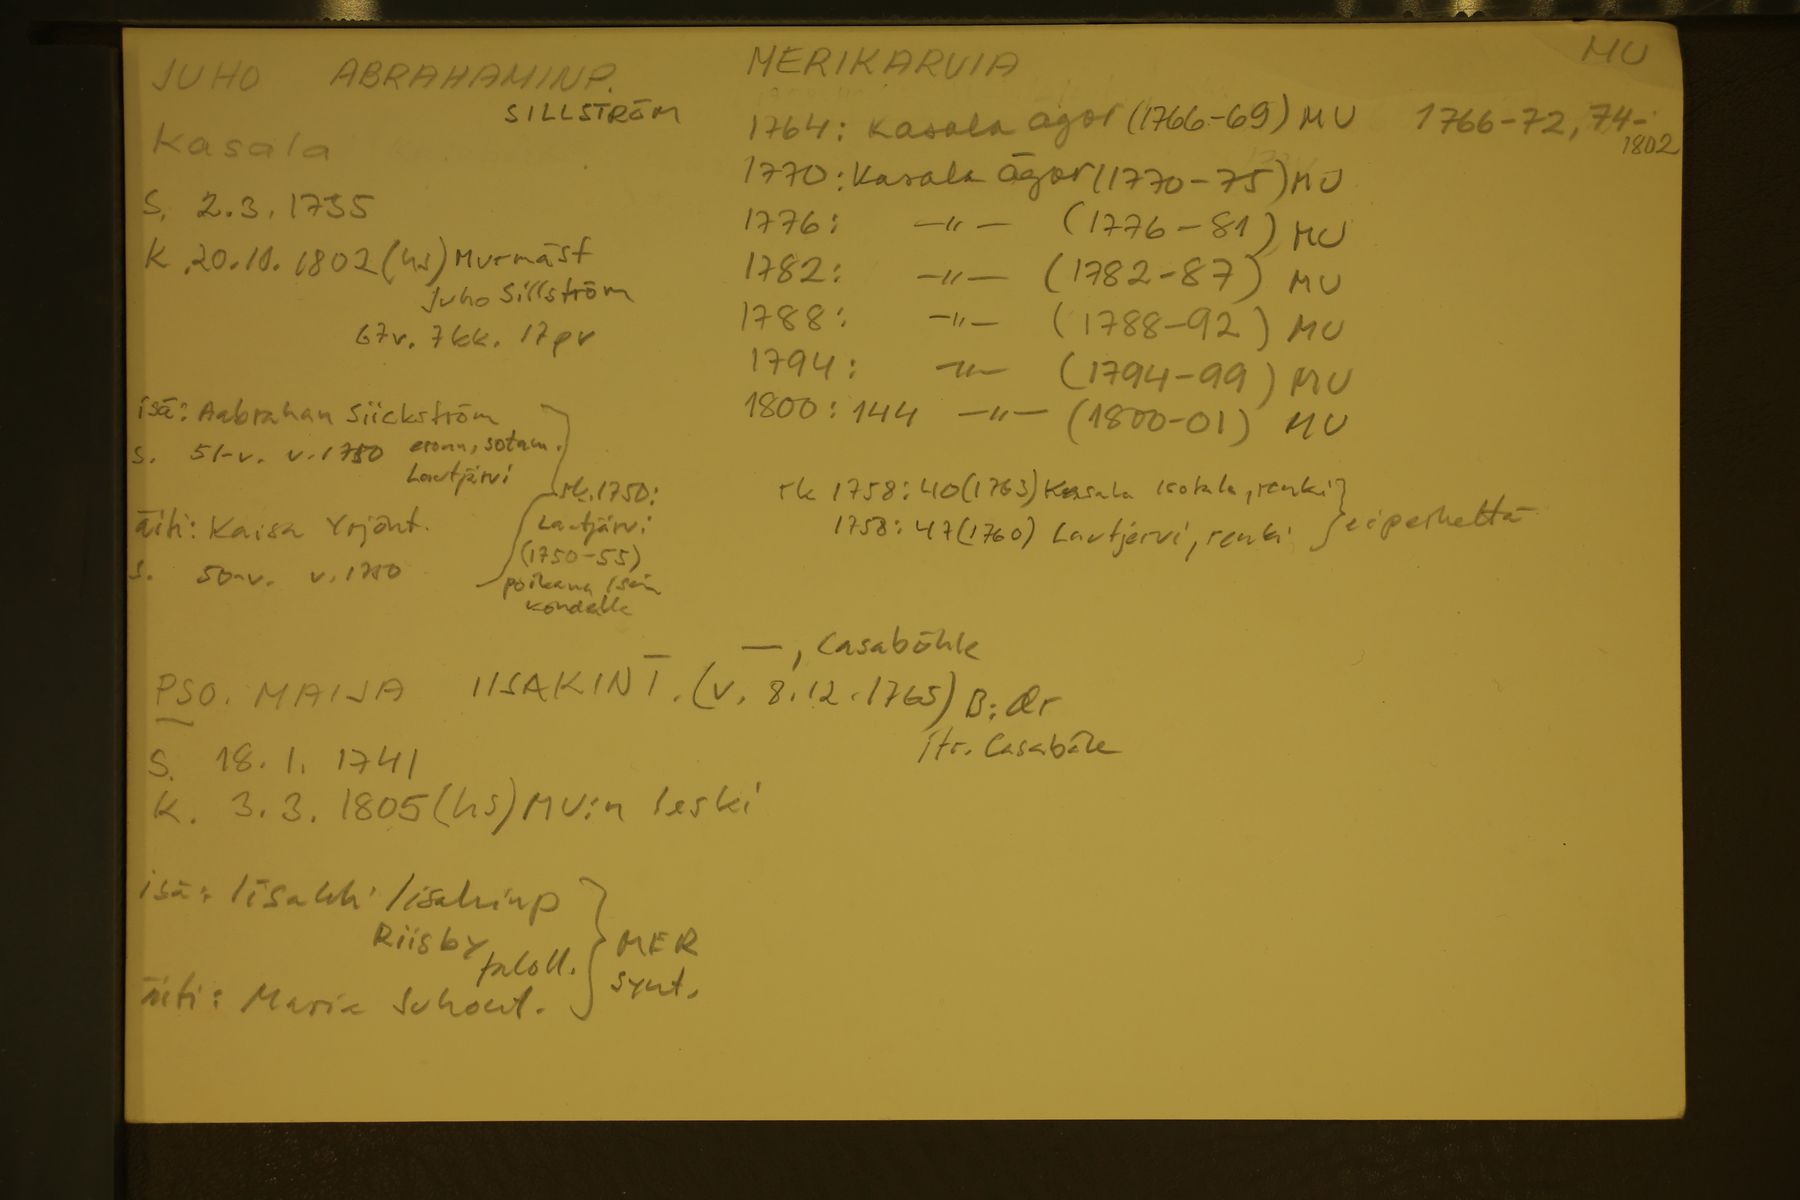 JUHO ABRAHAMINP.
SILLSTRÖM
Kasala
S. 2.3.1735
K. 20.10.1802 (hs) Murmäst
Juho Sillström
67v. 7kk. 17pv
isä: Aabrahan Siickström
s. 51-v. v.1750 eronn, sotam.
Lautjärvi
äiti: Kaisa Yrjönt.
s. 50-v. v.1750
rk.1750:
Lautjärvi
(1750-55)
poikana isän
kohdalla
MERIKARVIA
MU
1764: Kasala ägor (1766-69) MU 1766-72, 74-
1802
1770: Kasala ägor (1770-75) MU
1776: —"— (1776-81) MU
1782: —"— (1782-87) MU
1788: —"— (1788-92) MU
1794: —"— (1794-99) MU
1800: 144 —"— (1800-01) MU
rk 1758: 40 (1763) Kasala Isotalo, renki
1758: 47 (1760) Lautjärvi, renki
ei perhettä
—, Casaböhle
PSO. MAIJA IISAKINT. (v. 8.12.1765) B: Dr
itr. Casaböle
S. 18.1.1741
K. 3.3.1805 (hs) MU:n leski
isä: Iisakki Iisakinp
Riisby
taloll.
äiti: Maria Juhont.
MER
synt.